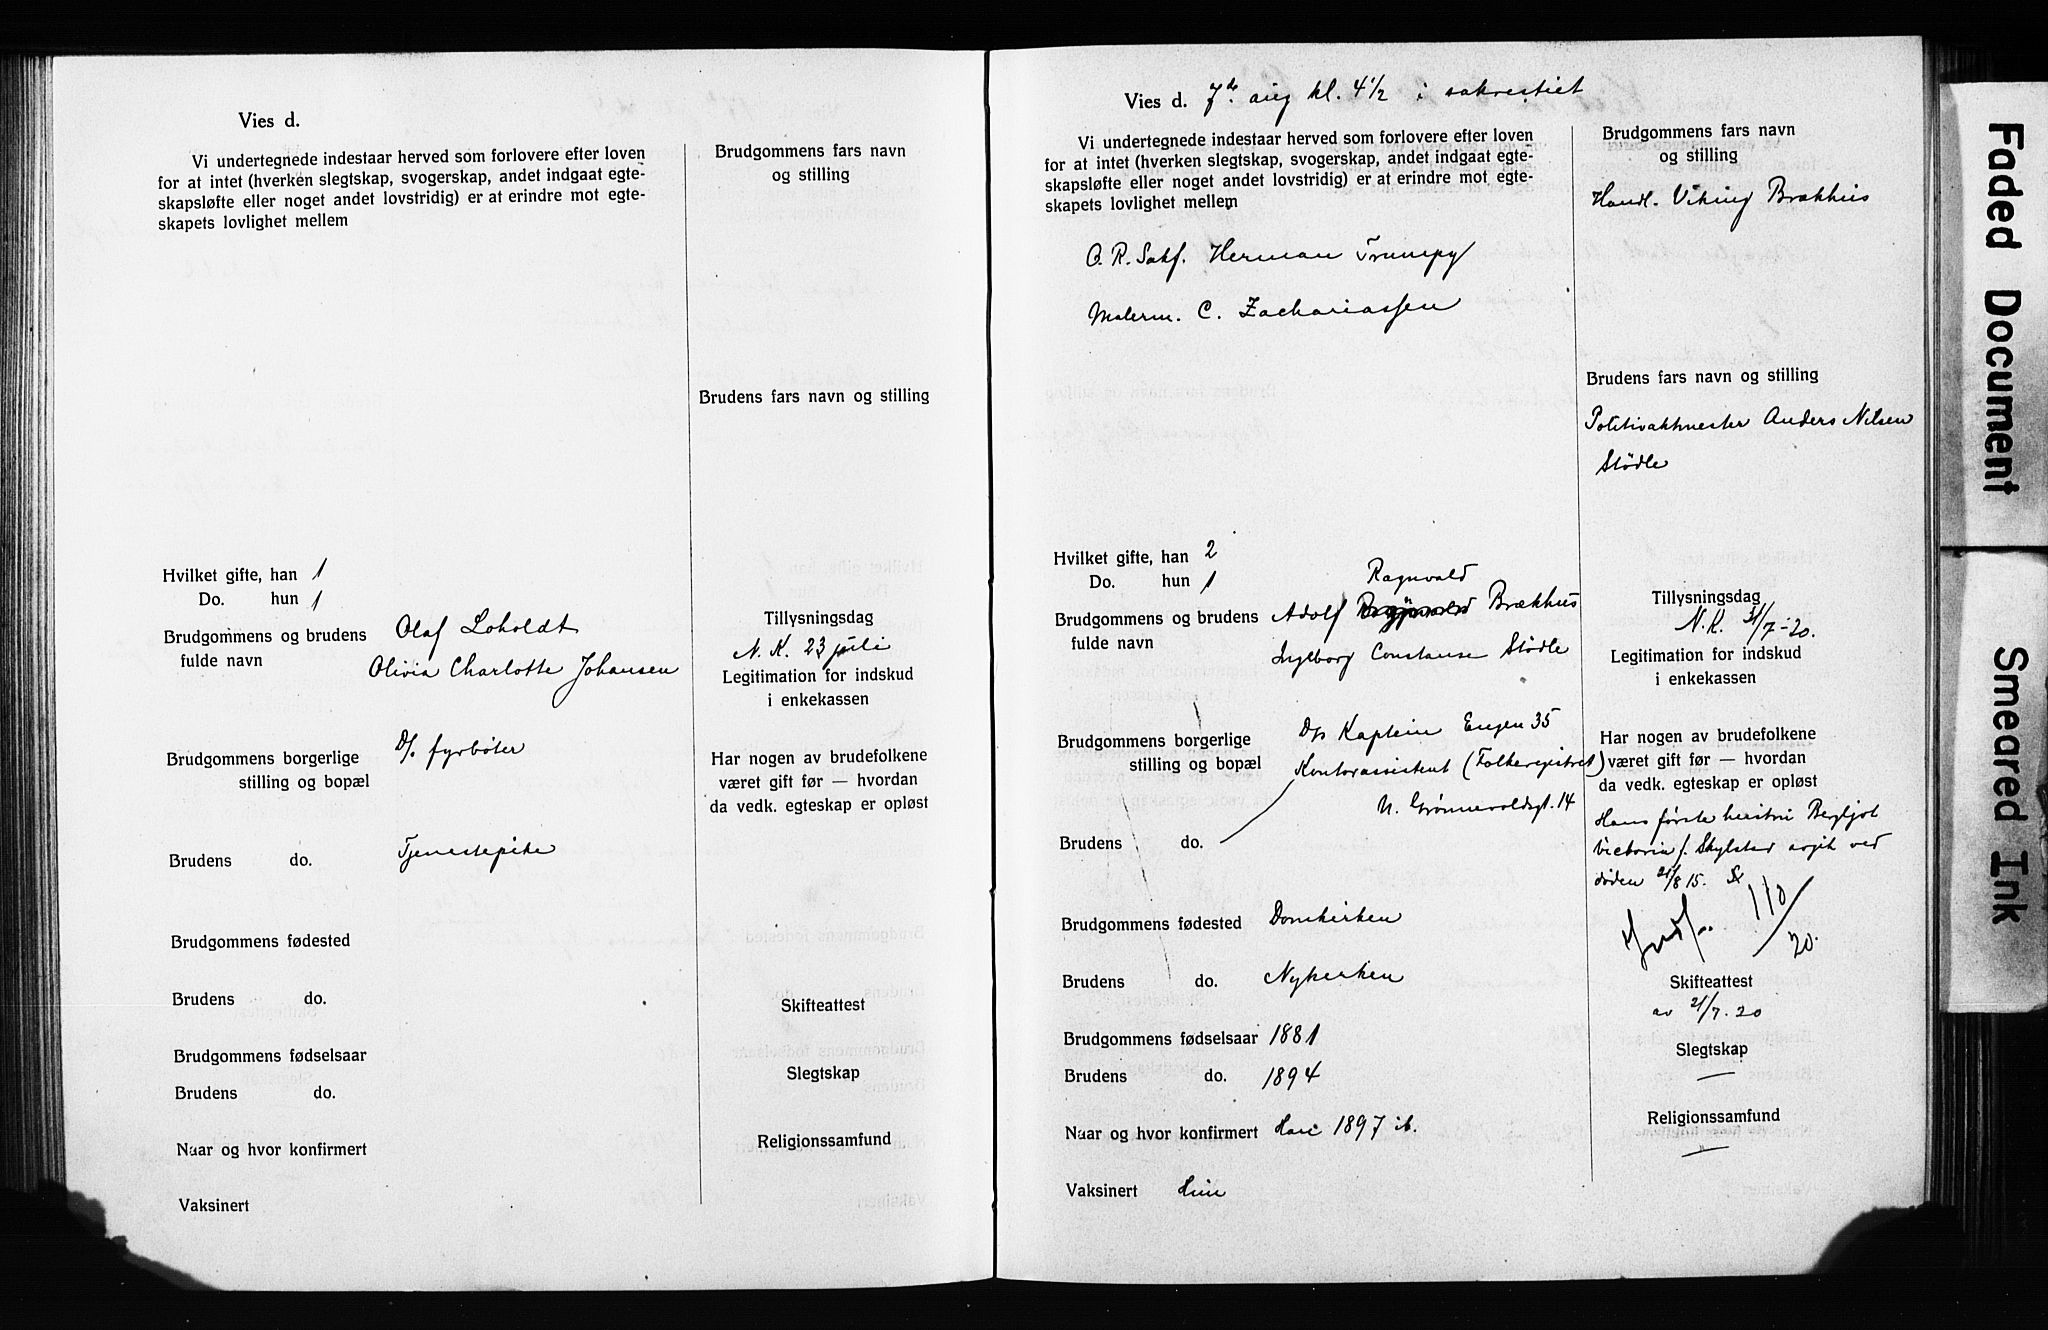 Vies d.
Vi undertegnede indestaar herved som forlovere efter loven
for at intet (hverken slegtskap, svogerskap, andet indgaat egte-
skapsløfte eller noget andet lovstridig) er at erindre mot egte-
skapets lovlighet mellem
Brudgommens fars navn
og stilling
Brudens fars navn og stilling
Hvilket gifte, han 1
Do. hun 1
Brudgommens og brudens
fulde navn
Olaf Loholdt
Olivia Charlotte Johansen
Tillysningsdag
N. K. 23 juli
Legitimation for indskud
i enkekassen
Brudgommens borgerlige
stilling og bopæl
D/s fyrbøter
Har nogen av brudefolkene
været gift før — hvordan
da vedk. egteskap er opløst
Brudens do. Tjenestepike
Brudgommens fødested
Brudens do.
Skifteattest
Brudgommens fødselsaar
Slegtskap
Brudens do.
Naar og hvor konfirmert
Religionssamfund
Vaksinert
Vies d. 7de aug kl. 4 1/2 i sakrestiet
Vi undertegnede indestaar herved som forlovere efter loven
for at intet (hverken slegtskap, svogerskap, andet indgaat egte-
skapsløfte eller noget andet lovstridig) er at erindre mot egte-
skapets lovlighet mellem
Brudgommens fars navn
og stilling
Handl. Viking Brækhus
O. R. Sakf. Herman Trumpy
Malerm. C. Zachariassen
Brudens fars navn og stilling
Politivaktmester Anders Nilsen
Stødle
Hvilket gifte, han 2
Do. hun 1
Ragnvald
Brudgommens og brudens
fulde navn
Adolf Brækhus
Ingeborg Constanse Stødle
Tillysningsdag
N. K. 31/7-20.
Legitimation for indskud
i enkekassen
Brudgommens borgerlige
stilling og bopæl
D/s Kaptein Engen 35
Kontorassistent (Folkeregistret)
N. Grønnevoldsgt. 14
Brudens do.
Har nogen av brudefolkene
været gift før — hvordan
da vedk. egteskap er opløst
Hans første hustru Bergljot
Victoria f. Skylstad avgik ved
døden 21/8 15.
110/20.
Brudgommens fødested Domkirken
Brudens do. Nykirken
Skifteattest
av 21/7.20
Brudgommens fødselsaar 1881
Slegtskap
Brudens do. 1894
Naar og hvor konfirmert 1897 ib.
Religionssamfund
Vaksinert
Faded Document
Smeared Ink